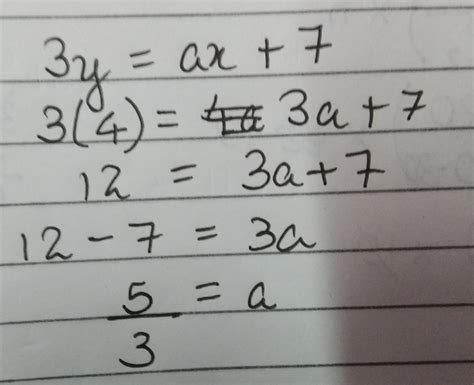 3y = ax + 7
3(4) = 3a + 7
12 = 3a + 7
12 - 7 = 3a
5/3 = a